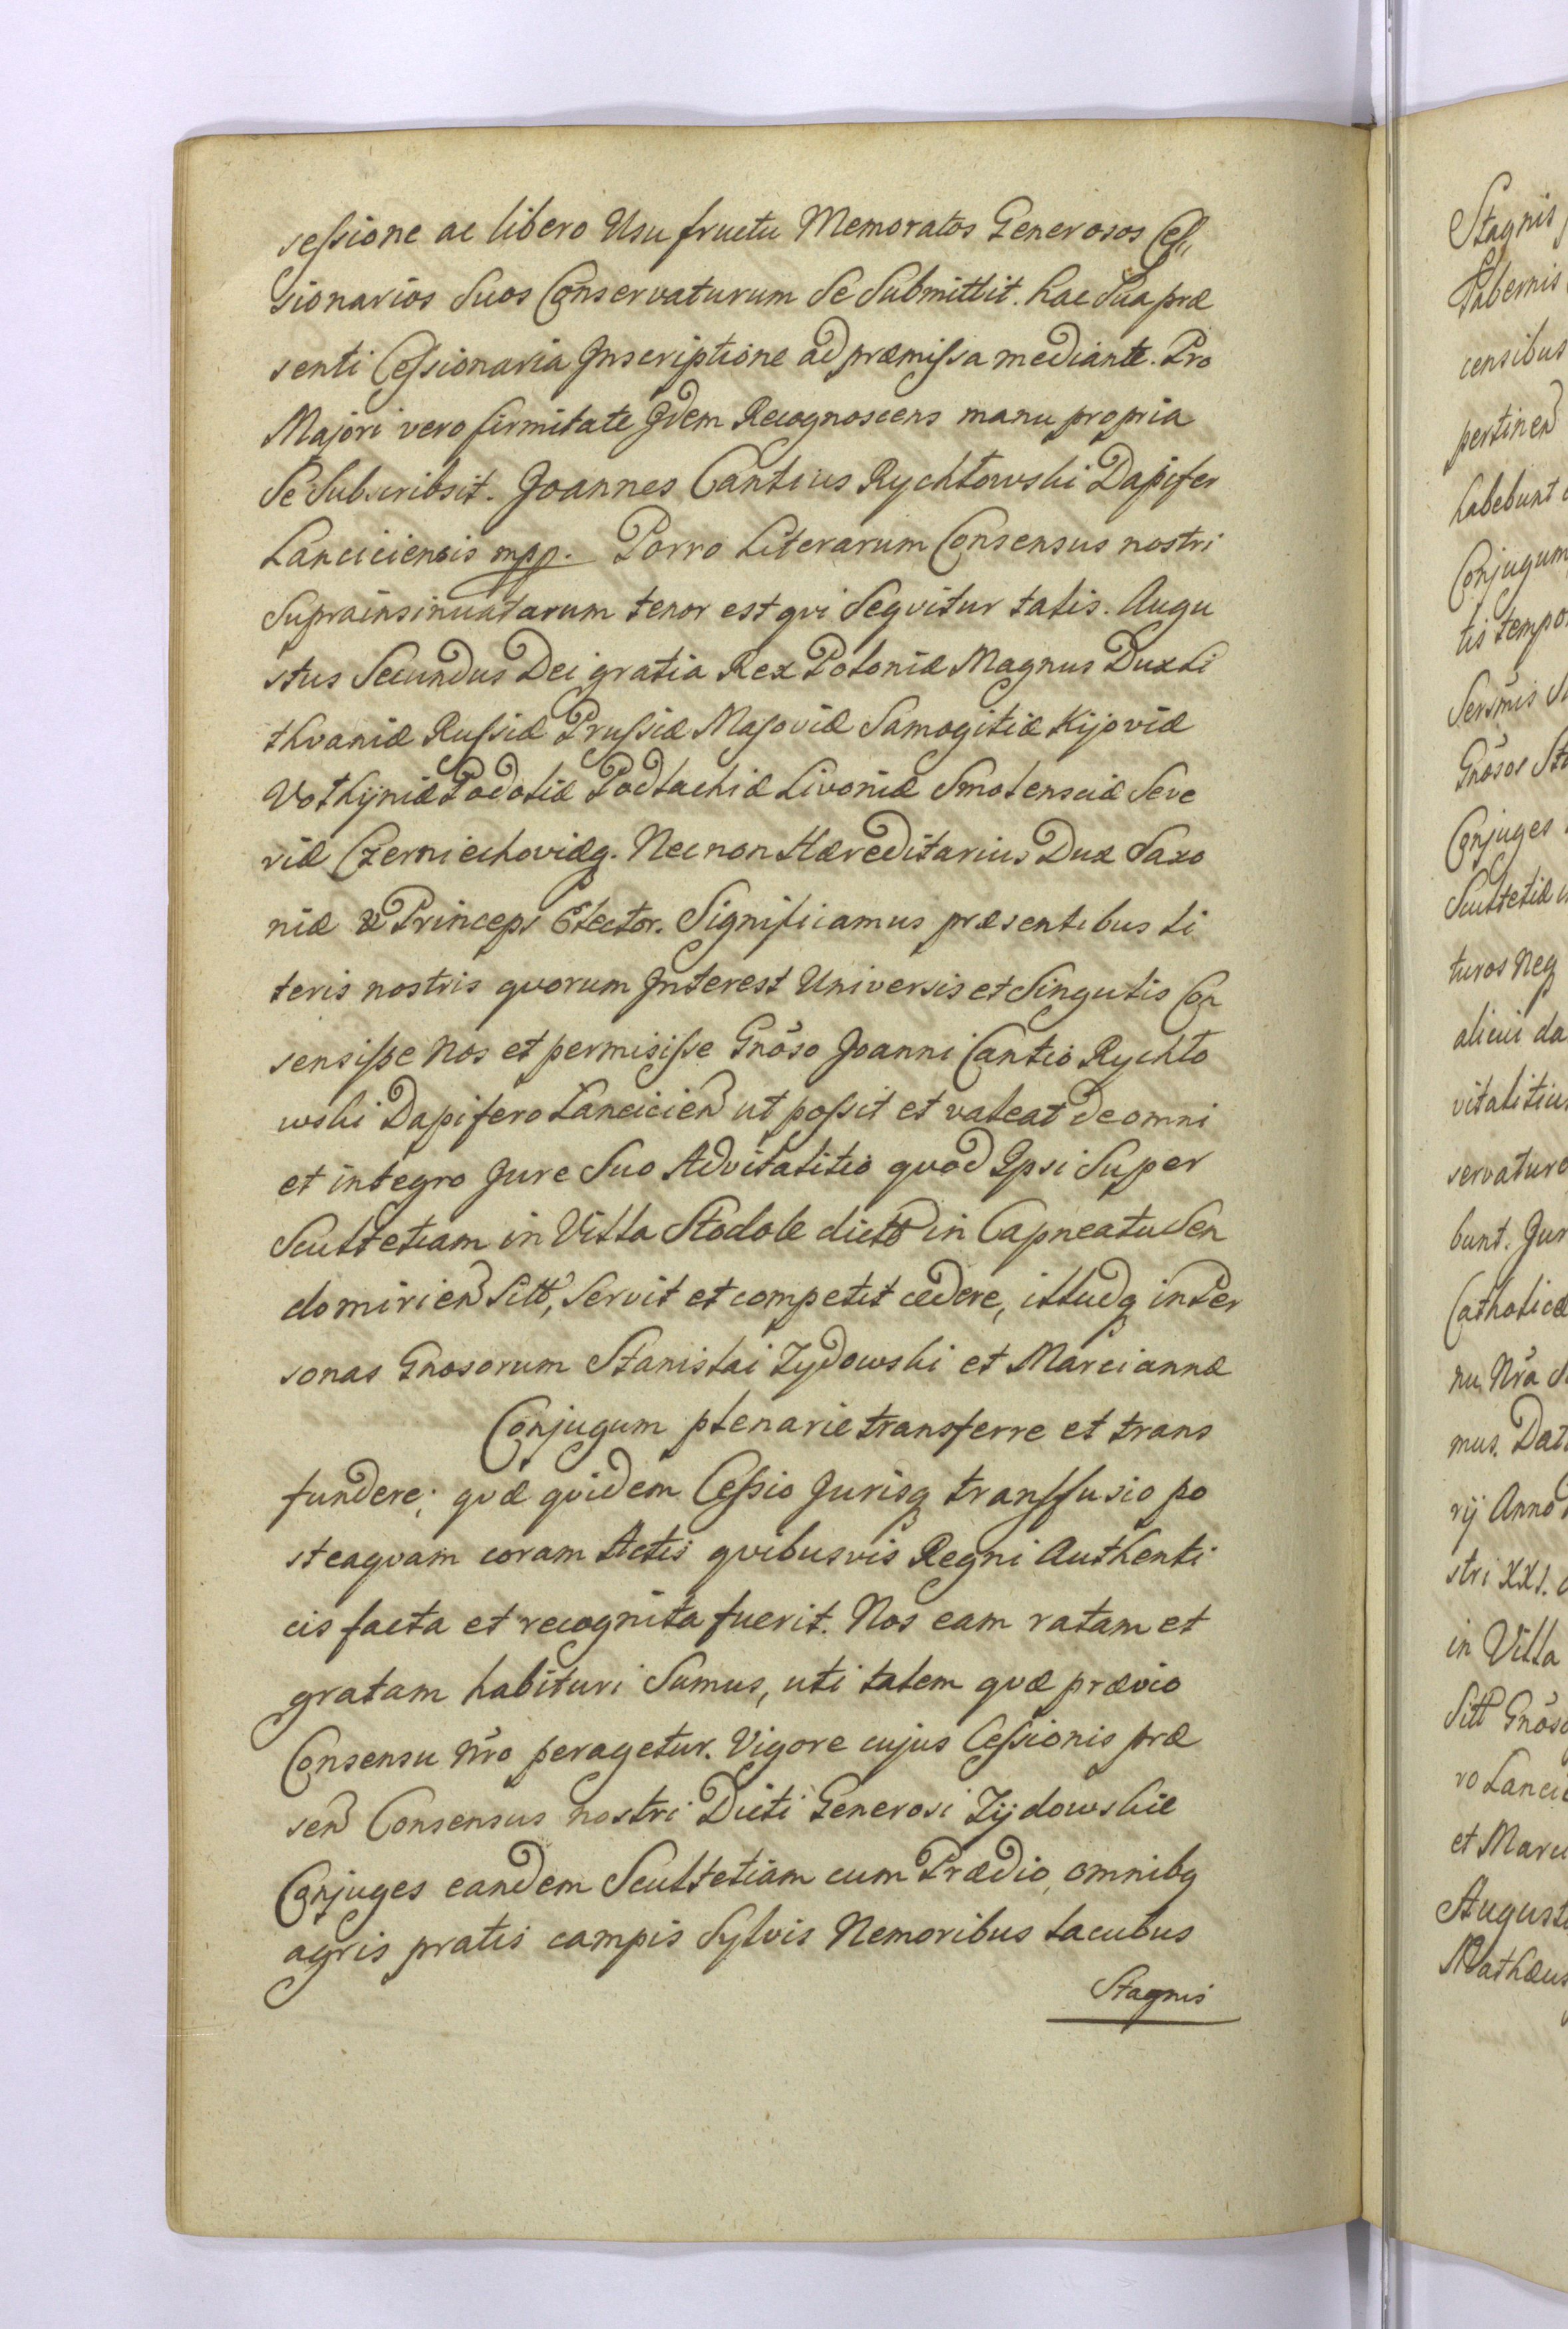 sessione ac libero Usu fructu Memoratos Generosos Ces„
sionarios Suos Conservaturum Se Submittit. hac Sua præ
senti Cessionaria Inscriptione ad præmissa mediante. Pro
Majori vero firmitate Idem Recognoscens manu propria
Se Subscribsit. Joannes Cantius Rychłowski Dapifer
Lanciciensis mpp. Porro Literarum Consensus nostri
Suprainsinuatarum tenor est qvi Seqvitur talis. Augu
stus Secundus Dei gratia Rex Poloniæ Magnus Dux Li
thvaniæ Russiæ Prussiæ Masoviæ Samogitiæ Kijoviæ
Volhijniæ Podoliæ Podlachiæ Livoniæ Smolensciæ Seve
riæ Czerniechoviæq. Nec non Hæreditarius Dux Saxo
niæ & Princeps Elector. Significamus præsentibus li
teris nostris qvorum Interest Universis et Singulis Con
sensisse Nos et permisisse Gnõso Joanni Cantio Rychło
wski Dapifero Lancicien ut possit et valeat de omni
et integro Jure Suo Advitalitio qvod Ipsi Super
Scultetiam in Villa Stodole dictt in Capneatu Sen
domirien Sitt, Servit et competit cedere, illudq in Per
sonas Gnosorum Stanislai Zydowski et Marciannæ
Conjugum plenarie transferre et trans
fundere; qvæ qvidem Cessio Jurisq transfusio po
steaqvam coram Actis qvibusvis Regni Authenti
cis facta et recognita fuerit. Nos eam ratam et
gratam habituri Sumus, uti talem qvæ prævio
Consensu Nro peragetur. Vigore cujus Cessionis præ
sen Consensus nostri Dicti Generosi Zijdowskie
Conjuges eandem Scultetiam cum Prædio, omnibq
agris pratis campis Sylvis Nemoribus lacubus
Stagnis
Stagnis
Tabernis
censibus
pertinen
habebunt
Conjugum
tis tempo
Sersmis
Gnõsos
Conjuges
Scultetiæ
turos Neq
alicui da
vitalitiu
servaturo
bunt. Jur
Catholicæ
nu Nrã
mus. Dat
rij Anno
stri XXI.
in Villa
Sitt Gnõso
ro Lancic
et Marci
Augustu
Mathæus